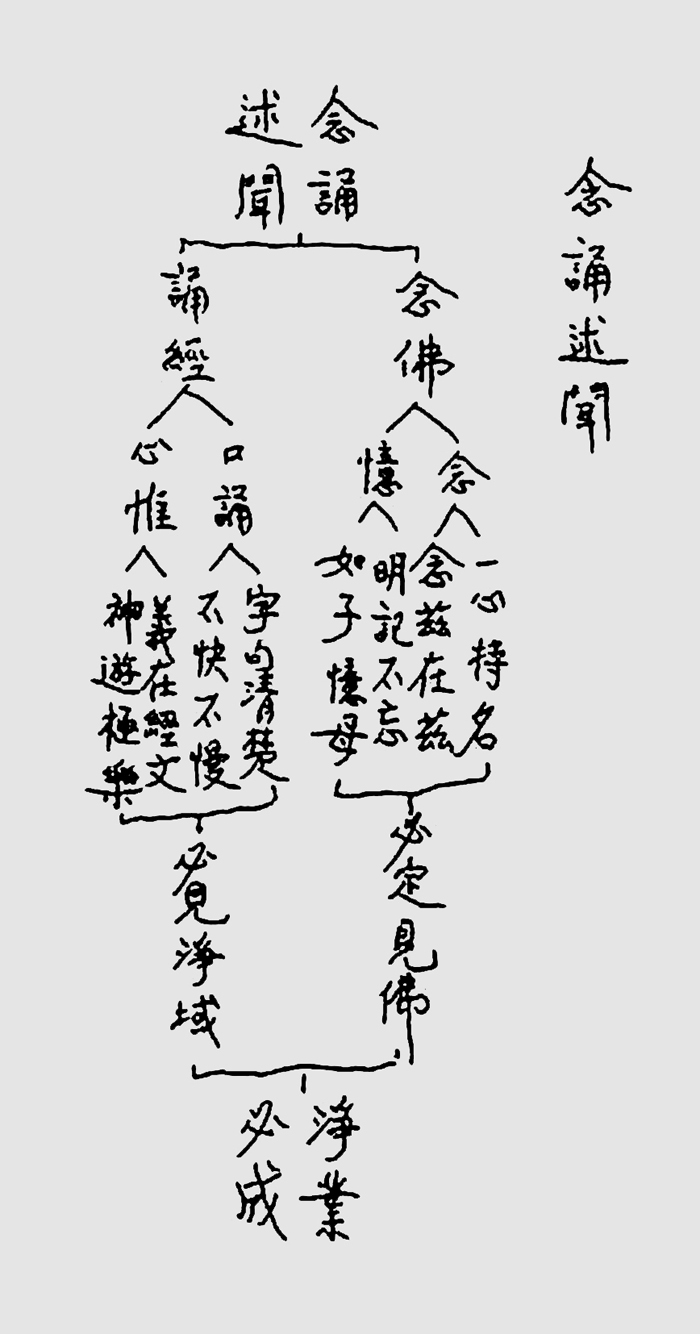 念誦述聞
念誦
述聞
念佛
念
一心持名
念茲在茲
憶
明記不忘
如子憶母
必定見佛
誦經
口誦
字句清楚
不快不慢
心惟
義在經文
神遊極樂
必見淨域
淨業
必成